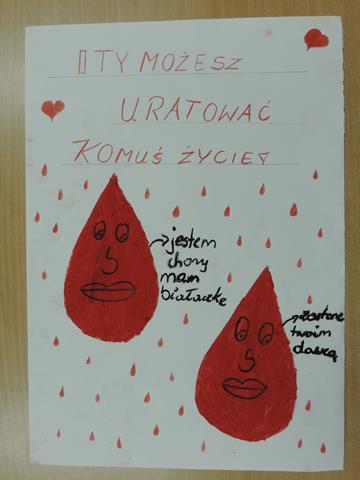 I TY MOŻESZ
URATOWAĆ
KOMUŚ ŻYCIE!
jestem
chory
mam
białaczkę
zostanę
twoim
dawcą